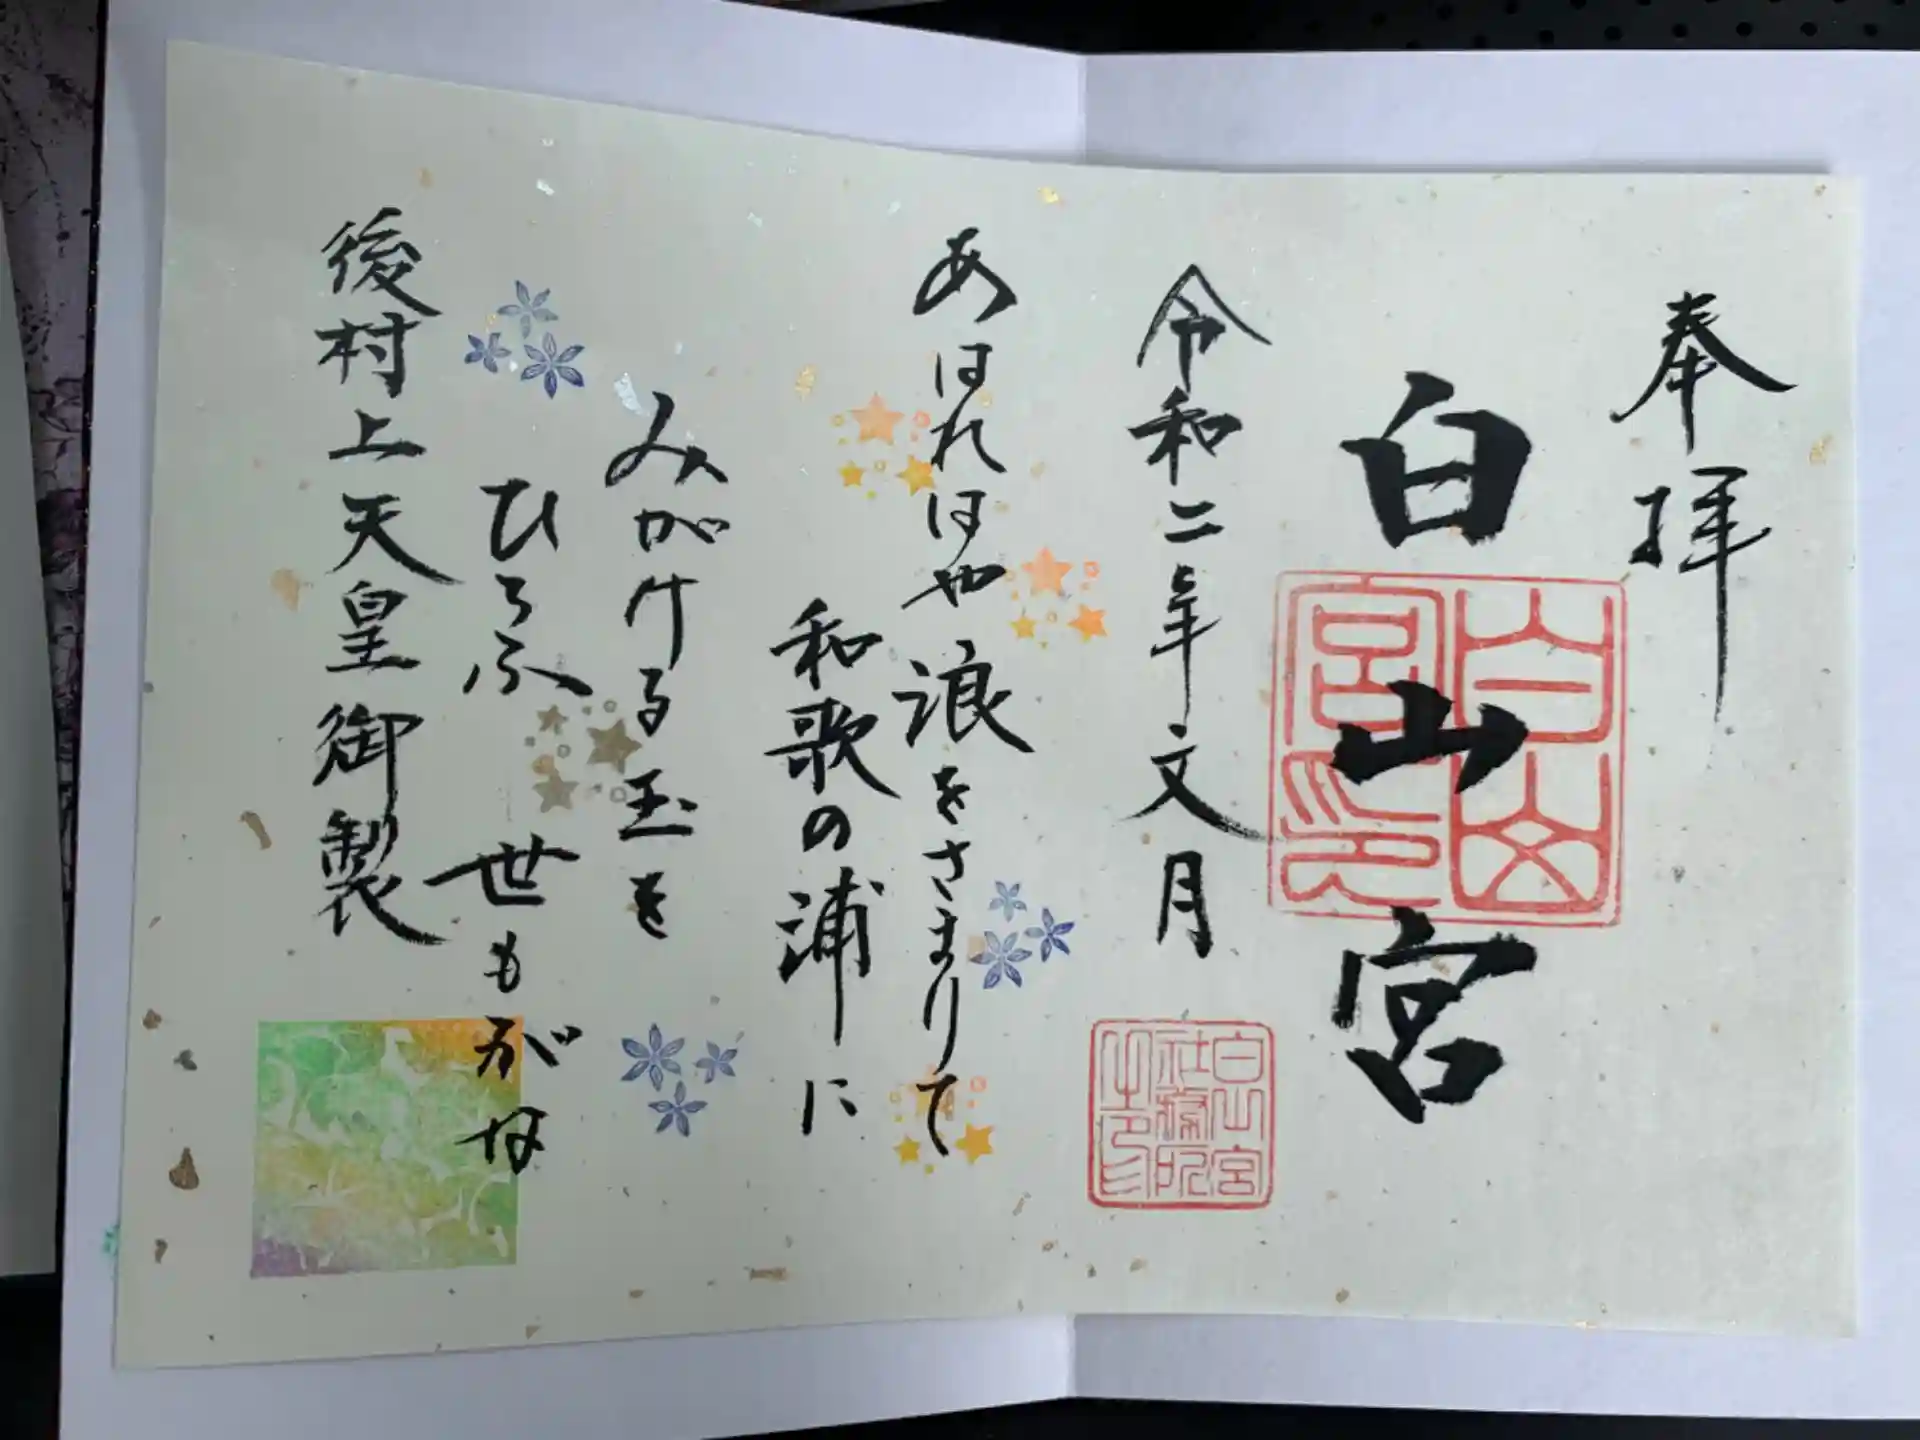 奉拝
白山宮
白山宮印
令和二年文月
白山宮社務所之印
あはれはや浪をさまりて
和歌の浦に
みがける玉を
ひろふ世もがな
後村上天皇御製